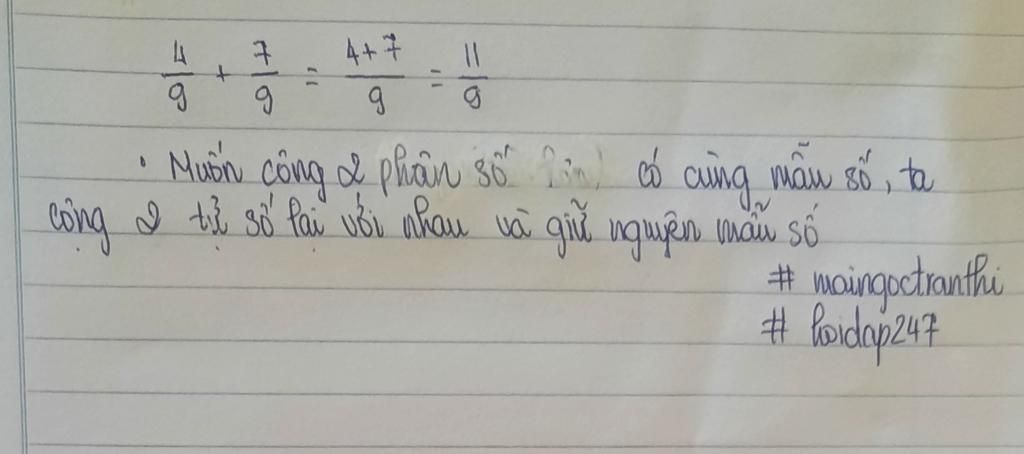 4/9 + 7/9 = 4+7/9 = 11/9
• Muốn cộng 2 phân số có cùng mẫu số, ta
cộng 2 tử số lại với nhau và giữ nguyên mẫu số
# maingoctranthi
# hoidap247